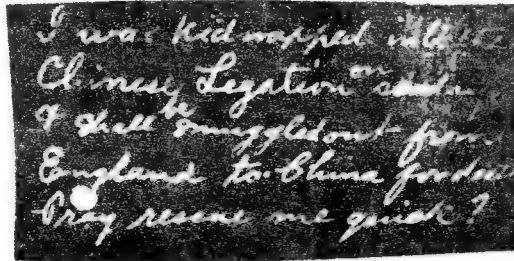 I was Kidnapped into the
Chinese Legation on
I shall be smuggled out from
England to China for
Pray rescue me quick?